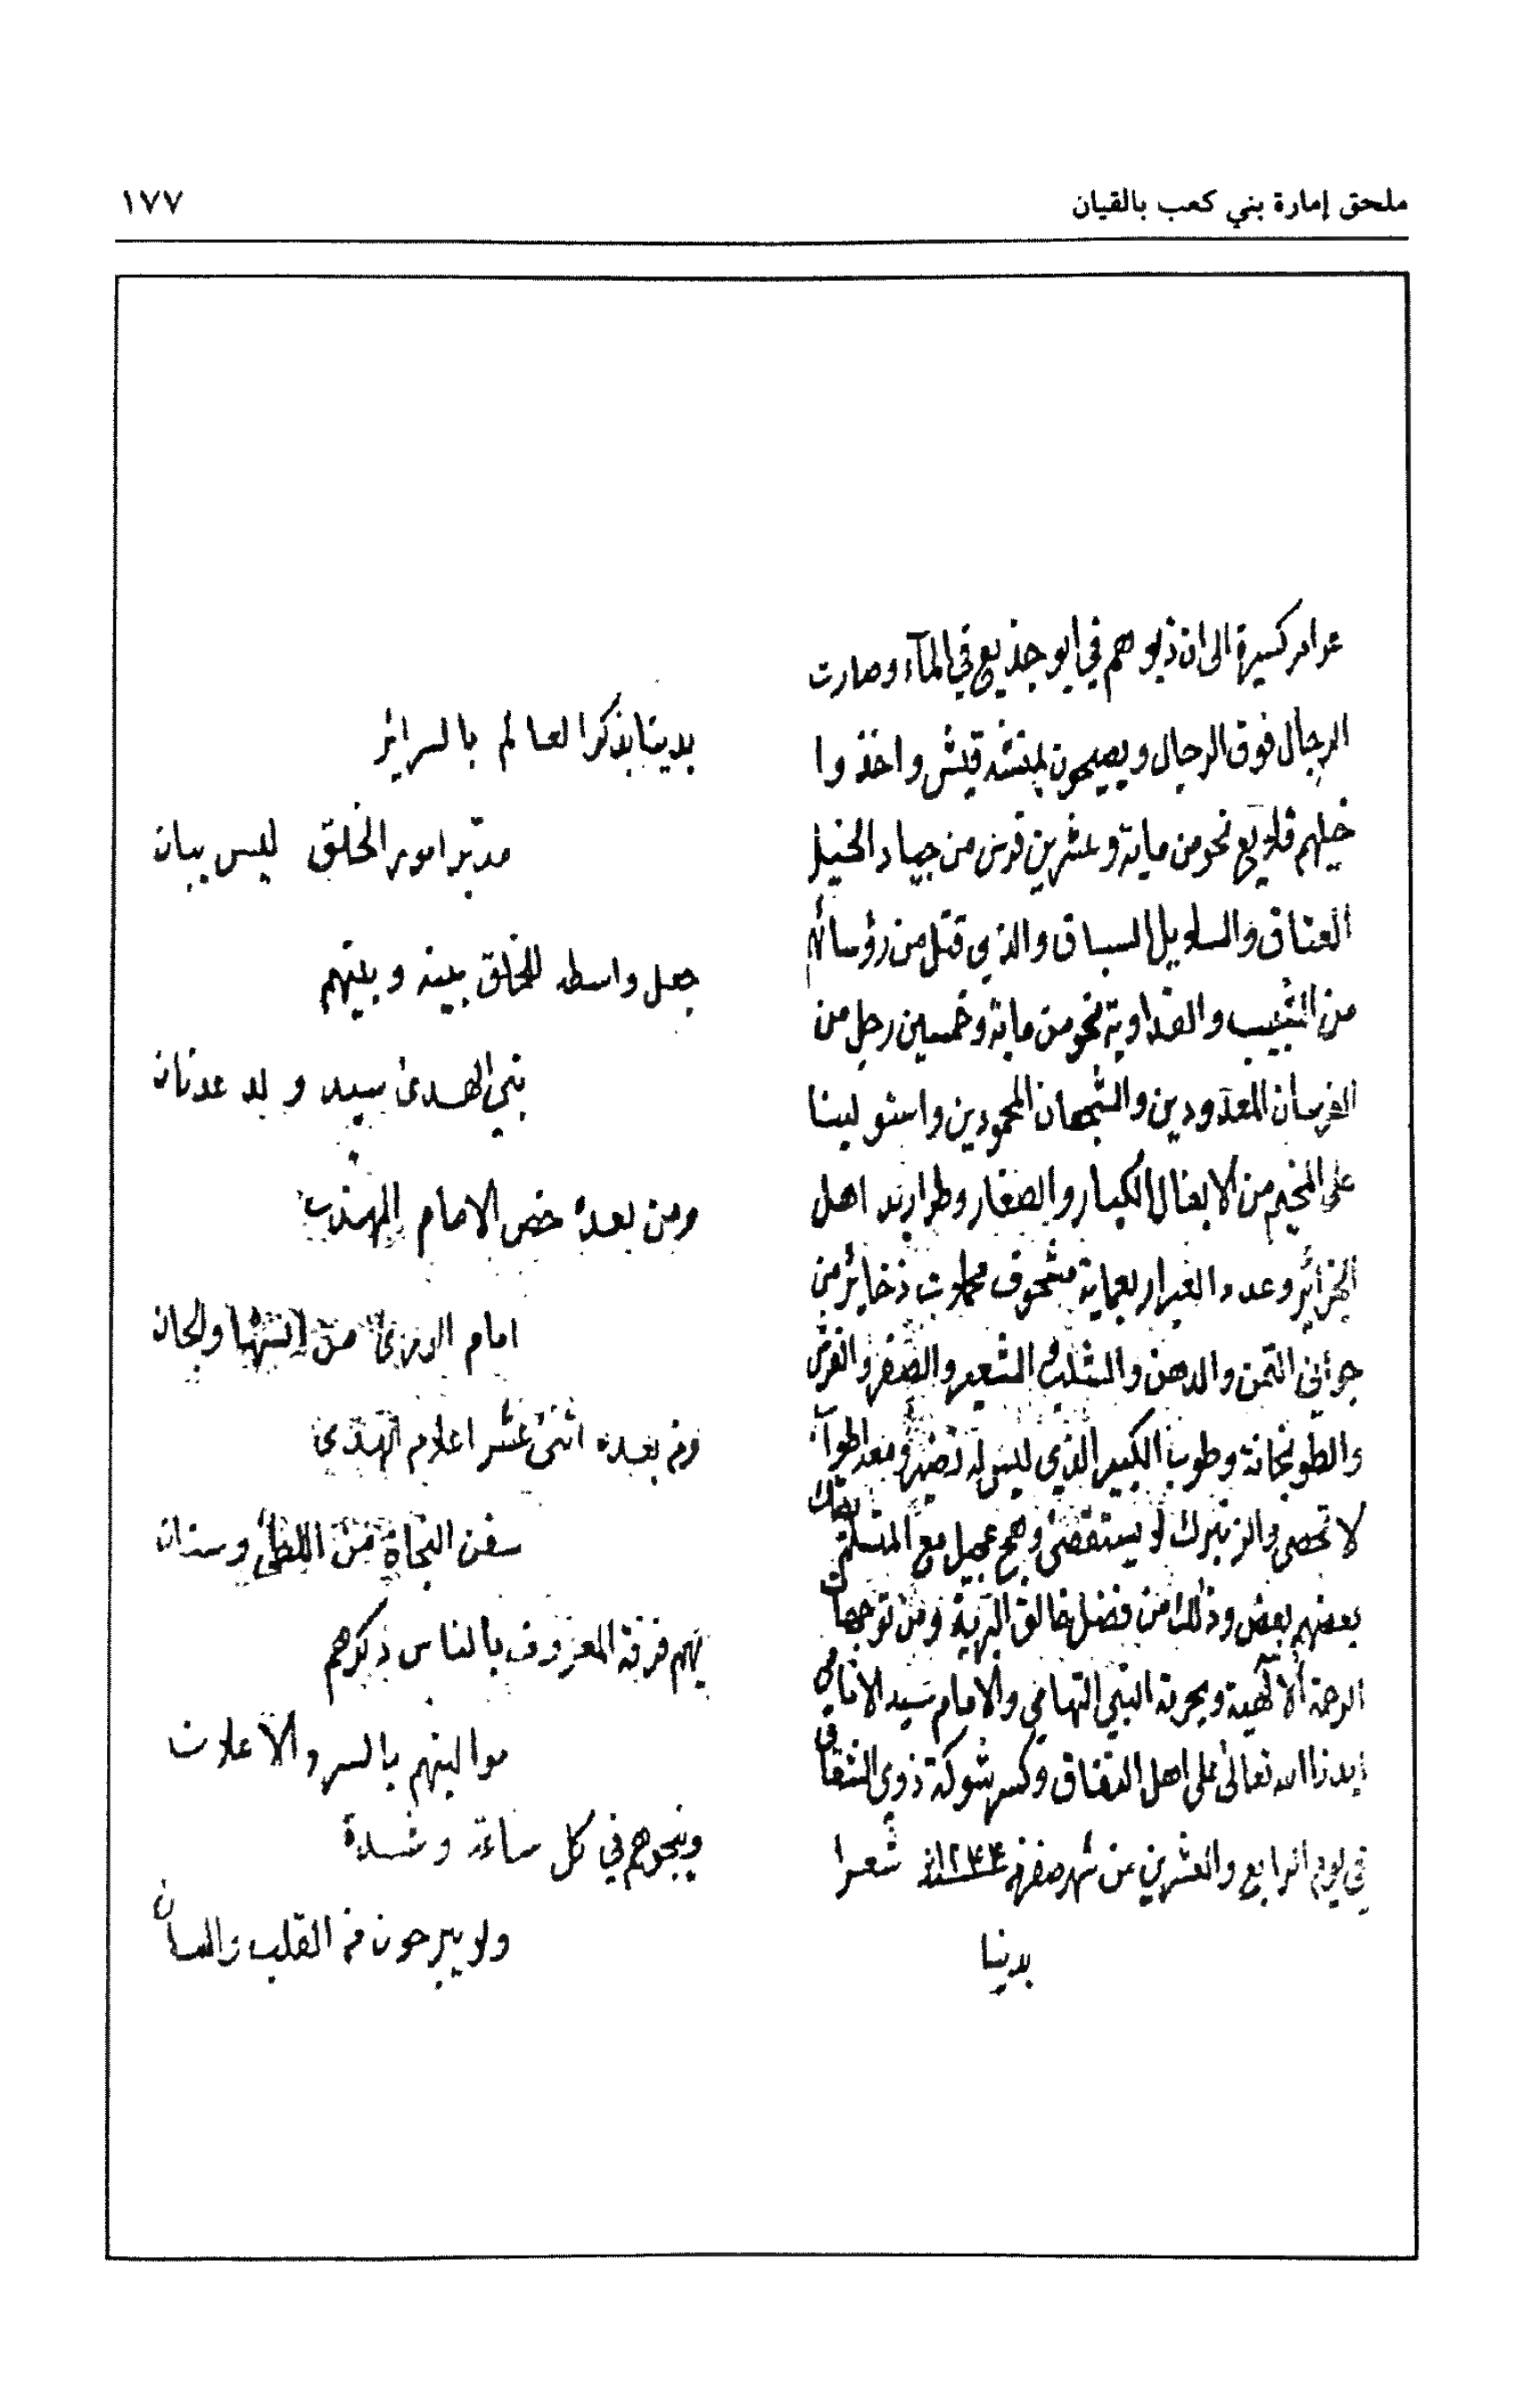 ملحق إمارة بني كعب بالقيان
١٧٧
كسيرة الى ان ذبوهم في ابو جذيع في المآء وصارت
الرجال فوق الرجال ويصيحون قيش واخذوا
خيلهم قلايع نحو من ماية وعشرين فرس من جياد الخيل
العتاق والسلاويل السباق والذي قتل من رؤسائهم
من والفداوية نحو من ماية وخمسين رجل من
الفرسان المعدودين والشجعان المحمودين واستولينا
على المخيم من الابغال الكبار والصغار وطراريد اهل
الجزائر وعدد اربعماية مشحوف مملوت ذخاير من
جواني التمن والدهن والشلب الشعير والصفر والفرش
والطوبخانة وطوب الكبير الذي ليس له نضير ومعد
لا تحصى والزنبرك لا يستقصى وهج عجيل مع المتسلم بفتك
بعضهم بعض وذلك من فضل خالق البرية ومن توجهات
الرحمة الآلهية وبحرمة النبي التهامي والامام سيد الانامي
ايدنا الله تعالى على اهل النفاق وكسر شوكة ذوي الشقاق
في يوم الرابع والعشرين من شهر صفر سنة ١٢٤٤ شعرا
بدينا
بدينا بذكر العالم بالسرائر
مدبّر امور الخلق ليس بيان
جعل واسطه للخلق بينه وبينهم
بني الهدى سيد ولد عدنان
ومن بعده خص الامام المهذب
امام الورى من والجان
ومن بعده اثنى عشر اعلام الهدى
سفن النجاة من اللظى وسنان
بهم فرقة المعروف بالناس ذكرهم
موالينهم بالسر والاعلان
وينجوهم في كل ساعة وشدة
ولا يبرحون من القلب والسان